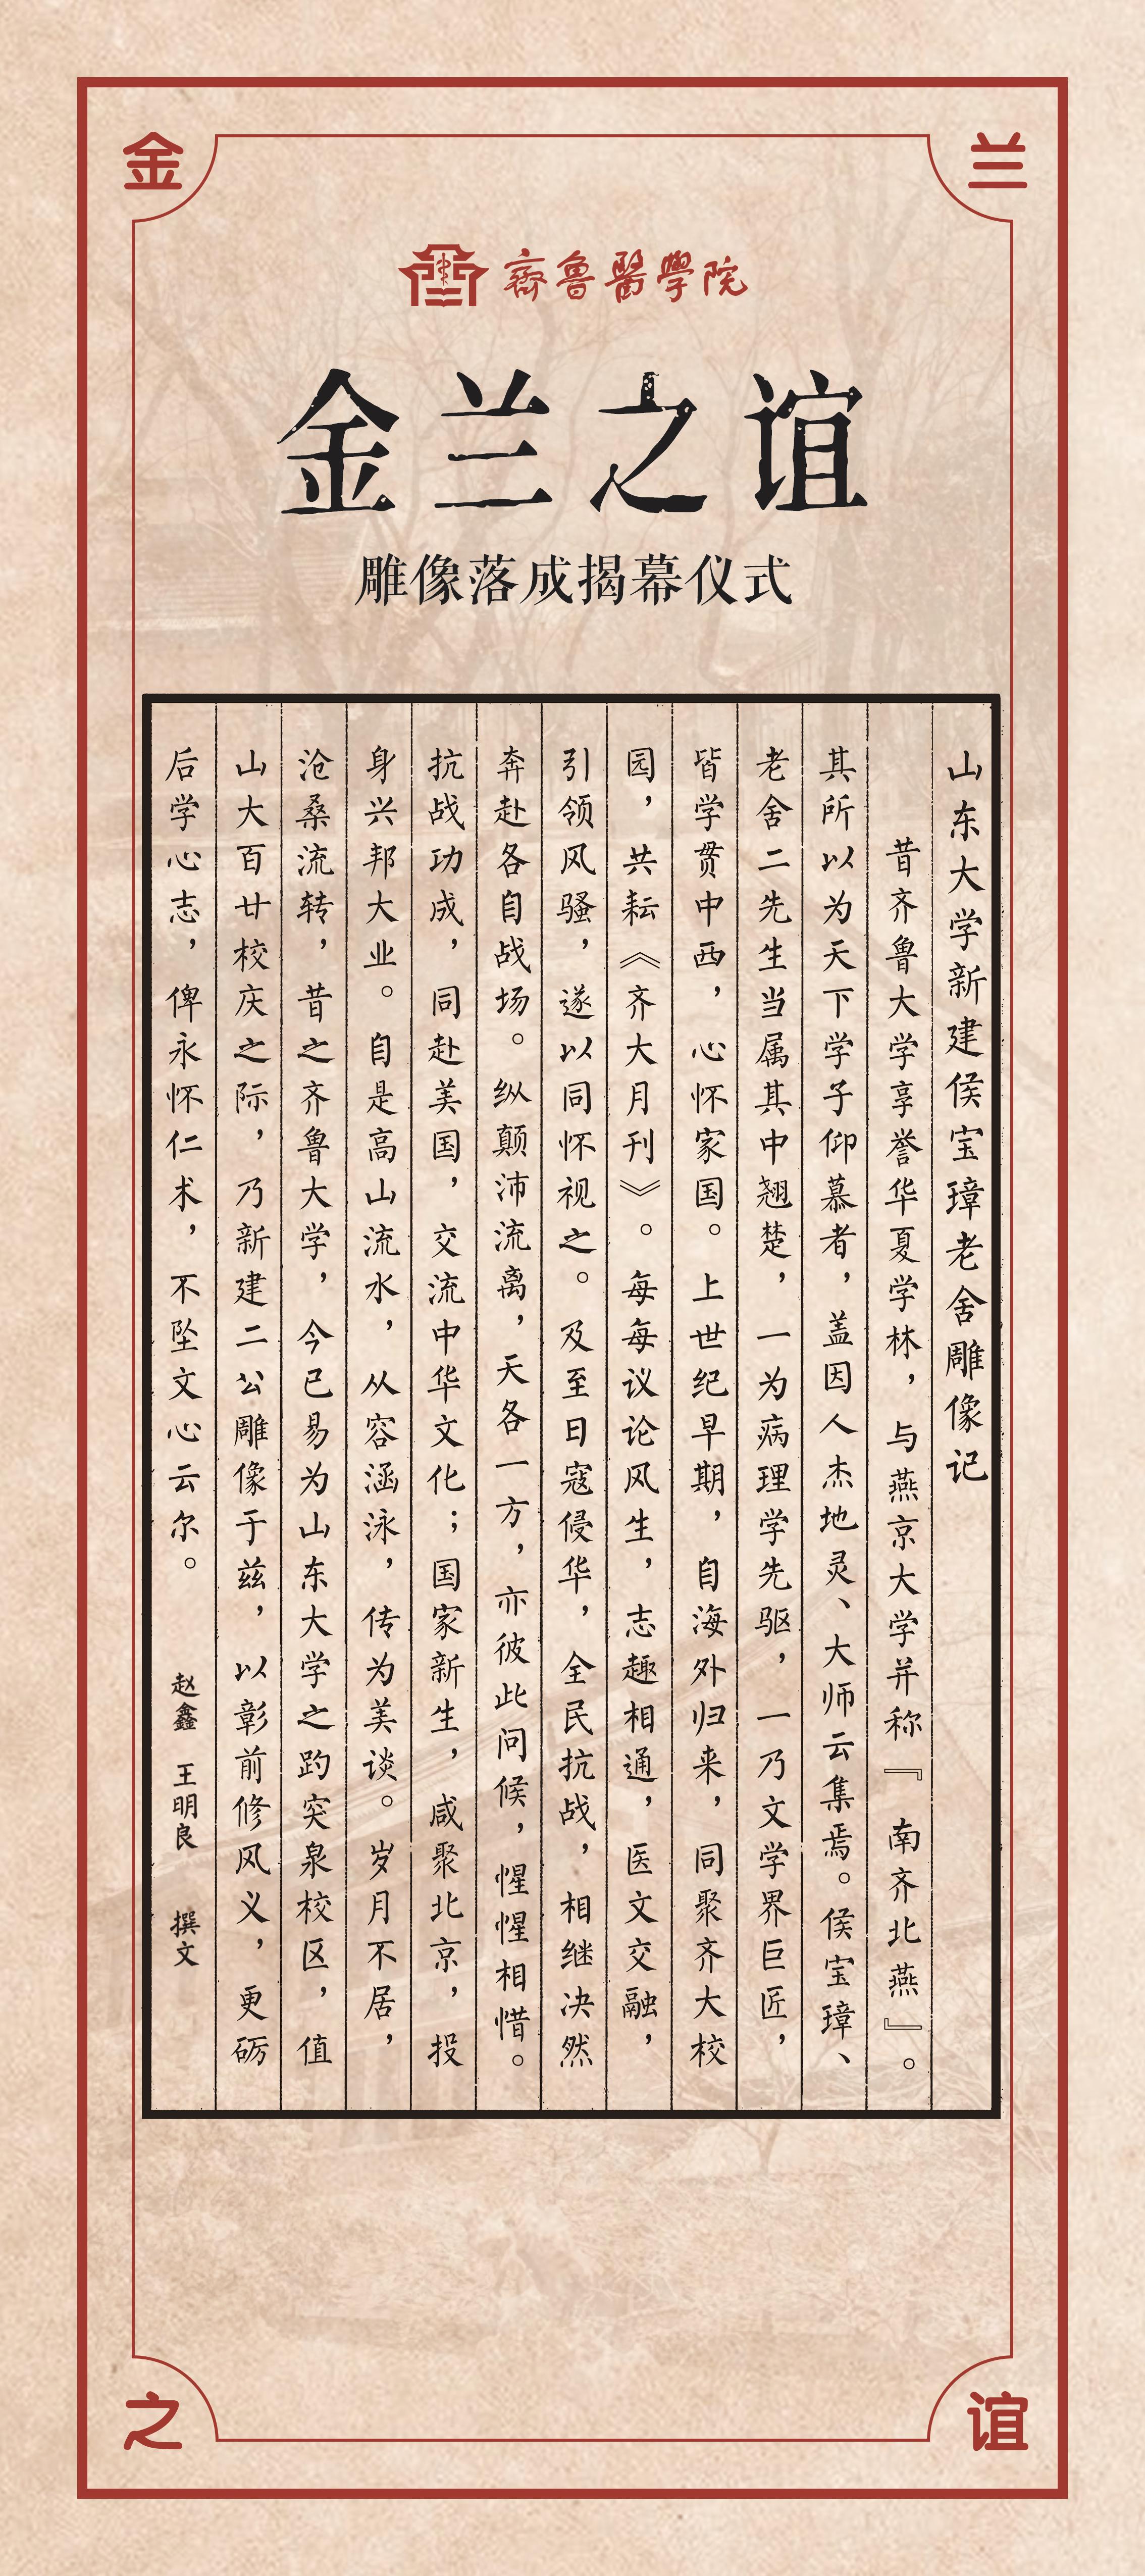 金
兰
齊魯醫學院
金兰之谊
雕像落成揭幕仪式
山东大学新建侯宝璋老舍雕像记
昔齐鲁大学享誉华夏学林，与燕京大学并称『南齐北燕』。
其所以为天下学子仰慕者，盖因人杰地灵、大师云集焉。侯宝璋、
老舍二先生当属其中翘楚，一为病理学先驱，一乃文学界巨匠，
皆学贯中西，心怀家国。上世纪早期，自海外归来，同聚齐大校
园，共耘《齐大月刊》。每每议论风生，志趣相通，医文交融，
引领风骚，遂以同怀视之。及至日寇侵华，全民抗战，相继决然
奔赴各自战场。纵颠沛流离，天各一方，亦彼此问候，惺惺相惜。
抗战功成，同赴美国，交流中华文化；国家新生，咸聚北京，投
身兴邦大业。自是高山流水，从容涵泳，传为美谈。岁月不居，
沧桑流转，昔之齐鲁大学，今已易为山东大学之趵突泉校区，值
山大百廿校庆之际，乃新建二公雕像于兹，以彰前修风义，更砺
后学心志，俾永怀仁术，不坠文心云尔。 赵鑫 王明良 撰文
之
谊